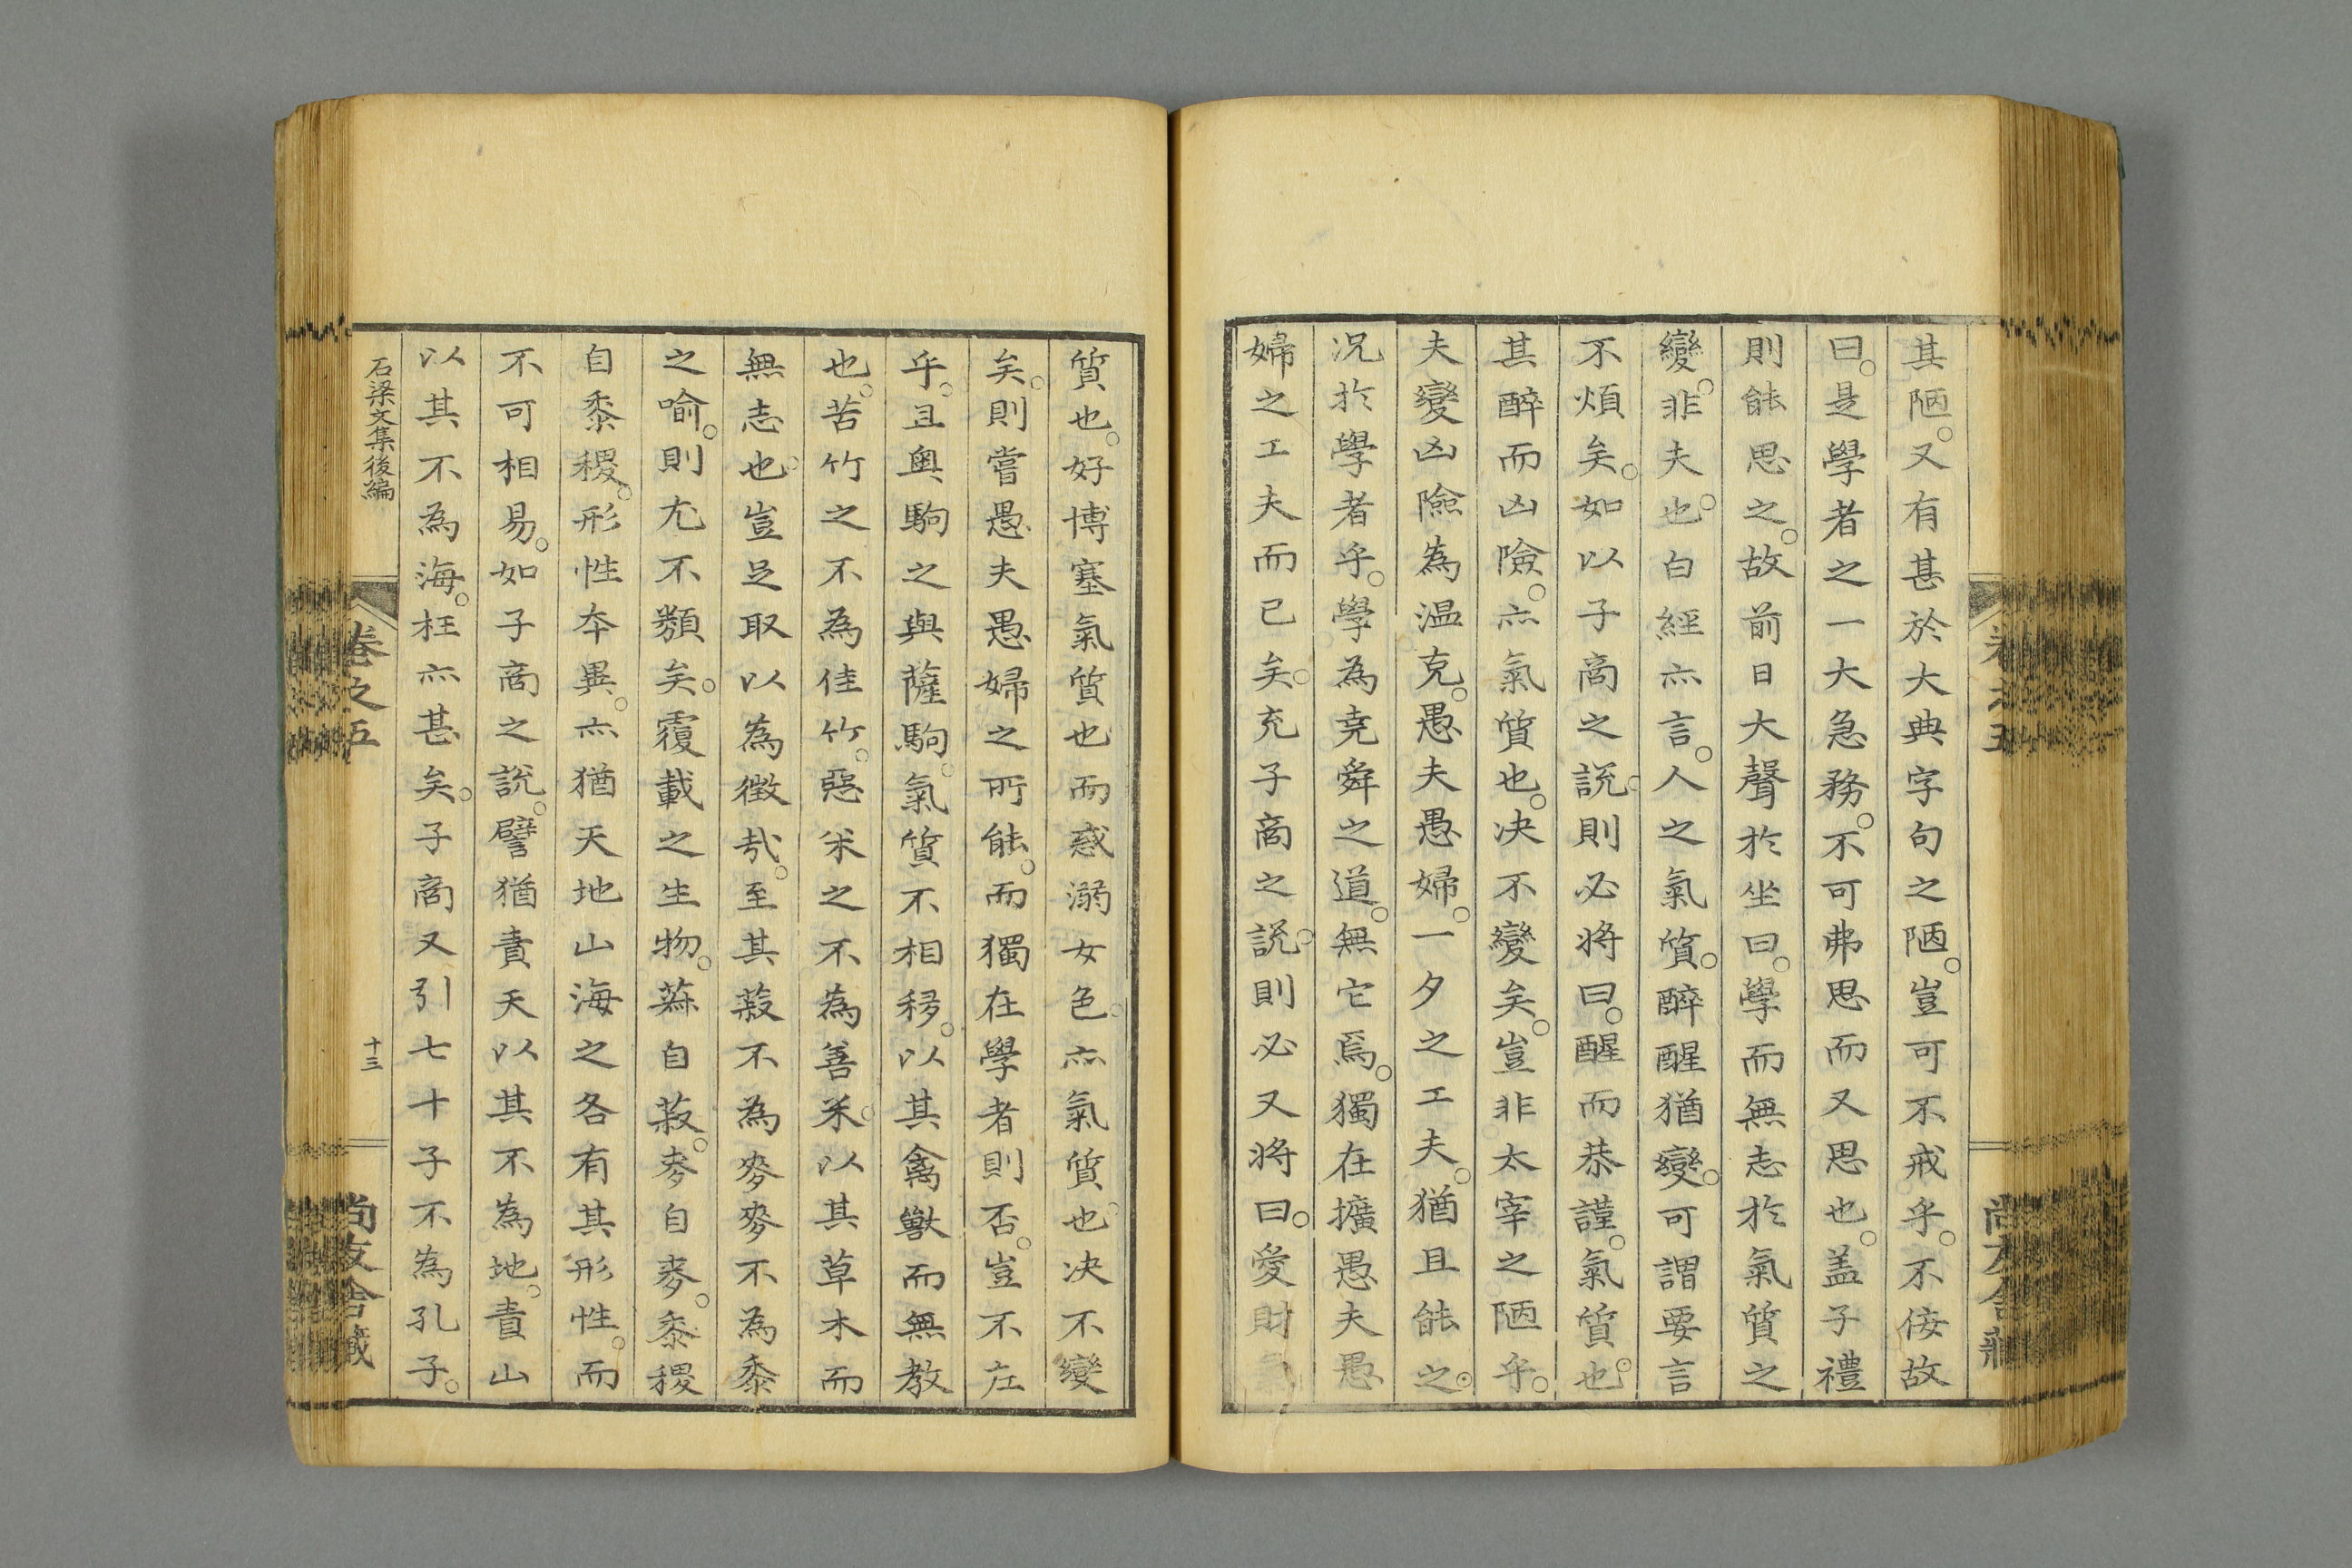 其陋。又有甚於大典字句之陋。豈可不戒乎。不侫故
曰。是學者之一大急務。不可弗思而又思也。盖子禮
則能思之。故前日大聲於坐曰。學而無志於氣質之
變。非夫也。白經亦言。人之氣質。醉醒猶變。可謂要言
不煩矣。如以子啇之說。則必將曰。醒而恭謹。氣質也。
其醉而凶險。亦氣質也。决不變矣。豈非太宰之陋乎。
夫變凶險為温克。愚夫愚婦。一夕之工夫。猶且能之。
况於學者乎。學為尭舜之道。無它焉。獨在擴愚夫愚
婦之工夫而已矣。充子啇之說。則必又將曰。愛財氣
質也。好博塞氣質也而惑溺女色。亦氣質也。决不變
矣。則嘗愚夫愚婦之所能。而獨在學者則否。豈不左
乎。且奥駒之與薩駒。氣質不相移。以其禽獸而無教
也。苦竹之不為佳竹。惡米之不為善米。以其草木而
無志也。豈足取以為徴哉。至其菽不為麥麥不為黍
之喻。則尤不類矣。覆載之生物。菽自菽。麥自麥。黍稷
自黍稷。形性本異。亦猶天地山海之各有其形性。而
不可相易。如子啇之說。譬猶責天以其不為地。責山
以其不為海。枉亦甚矣。子啇又引七十子不為孔子。
石梁文集後編
卷之五
十三
尚友舍藏